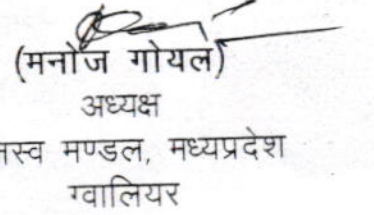 (मनोज गोयल)
अध्यक्ष
मण्डल, मध्यप्रदेश
ग्वालियर